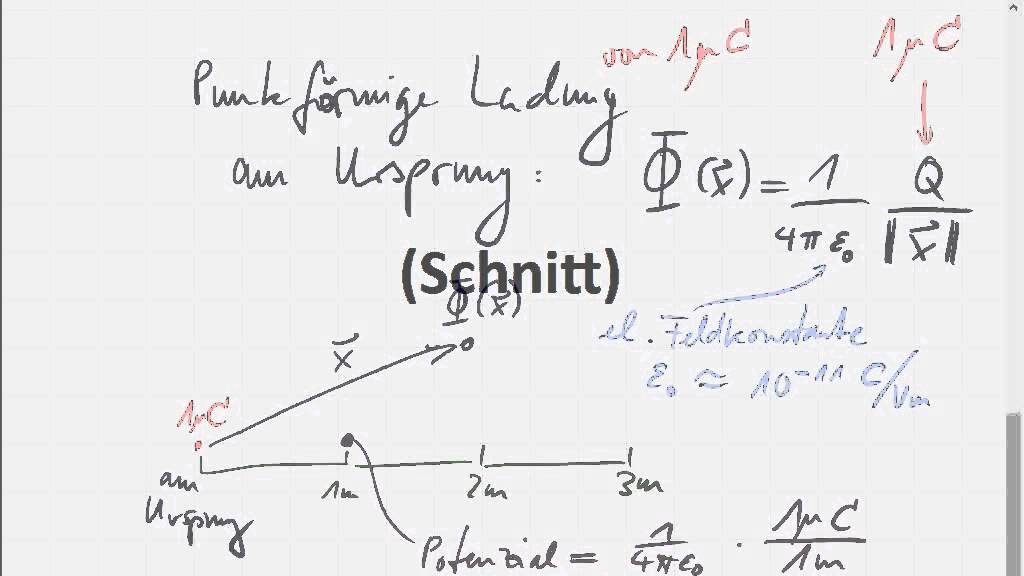 von 1μC
1μC
Punktförmige Ladung
am Ursprung:
Φ(x⃗) = 1 / 4πε₀ Q / ‖x⃗‖
(Schnitt)
Φ(x⃗)
el. Feldkonstante
x⃗
ε₀ ≈ 10⁻¹¹ C/Vm
1μC
am
Ursprung
1m
2m
3m
Potenzial = 1 / 4πε₀ · 1μC / 1m